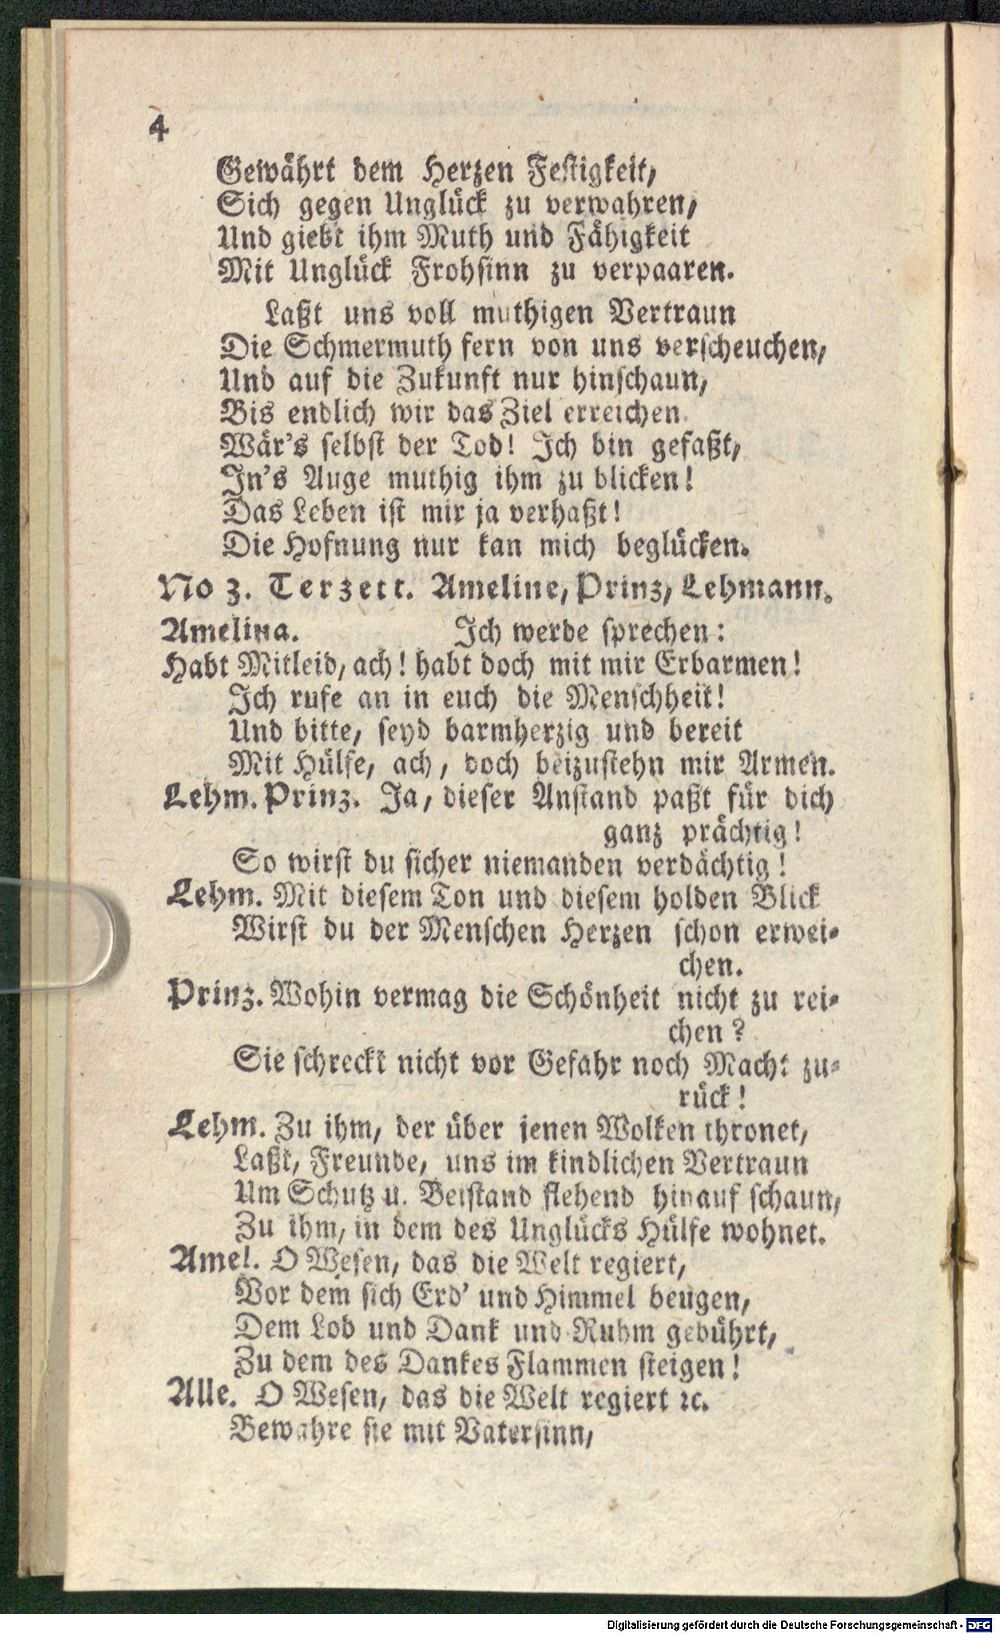 4
Gewährt dem Herzen Festigkeit,
Sich gegen Unglück zu verwahren,
Und giebt ihm Muth und Fähigkeit
Mit Unglück Frohsinn zu verpaaren.
Laßt uns voll muthigen Vertraun
Die Schmermuth fern von uns verscheuchen,
Und auf die Zukunft nur hinschaun,
Bis endlich wir das Ziel erreichen.
Wär's selbst der Tod! Ich bin gefaßt,
In's Auge muthig ihm zu blicken!
Das Leben ist mir ja verhaßt!
Die Hofnung nur kan mich beglücken.
No 3. Terzett. Ameline, Prinz, Lehmann.
Amelina. Ich werde sprechen:
Habt Mitleid, ach! habt doch mit mir Erbarmen!
Ich rufe an in euch die Menschheit!
Und bitte, seyd barmherzig und bereit
Mit Hülfe, ach, doch beizustehn mir Armen.
Lehm. Prinz. Ja, dieser Anstand paßt für dich
ganz prächtig!
So wirst du sicher niemanden verdächtig!
Lehm. Mit diesem Ton und diesem holden Blick
Wirst du der Menschen Herzen schon erwei-
chen.
Prinz. Wohin vermag die Schönheit nicht zu rei-
chen?
Sie schreckt nicht vor Gefahr noch Macht zu-
rück!
Lehm. Zu ihm, der über jenen Wolken thronet,
Laßt, Freunde, uns im kindlichen Vertraun
Um Schutz u. Beistand flehend hinauf schaun,
Zu ihm, in dem des Unglücks Hülfe wohnet.
Amel. O Wesen, das die Welt regiert,
Vor dem sich Erd' und Himmel beugen,
Dem Lob und Dank und Ruhm gebührt,
Zu dem des Dankes Flammen steigen!
Alle. O Wesen, das die Welt regiert ꝛc.
Bewahre sie mit Vatersinn,
Digitalisierung gefördert durch die Deutsche Forschungsgemeinschaft - DFG